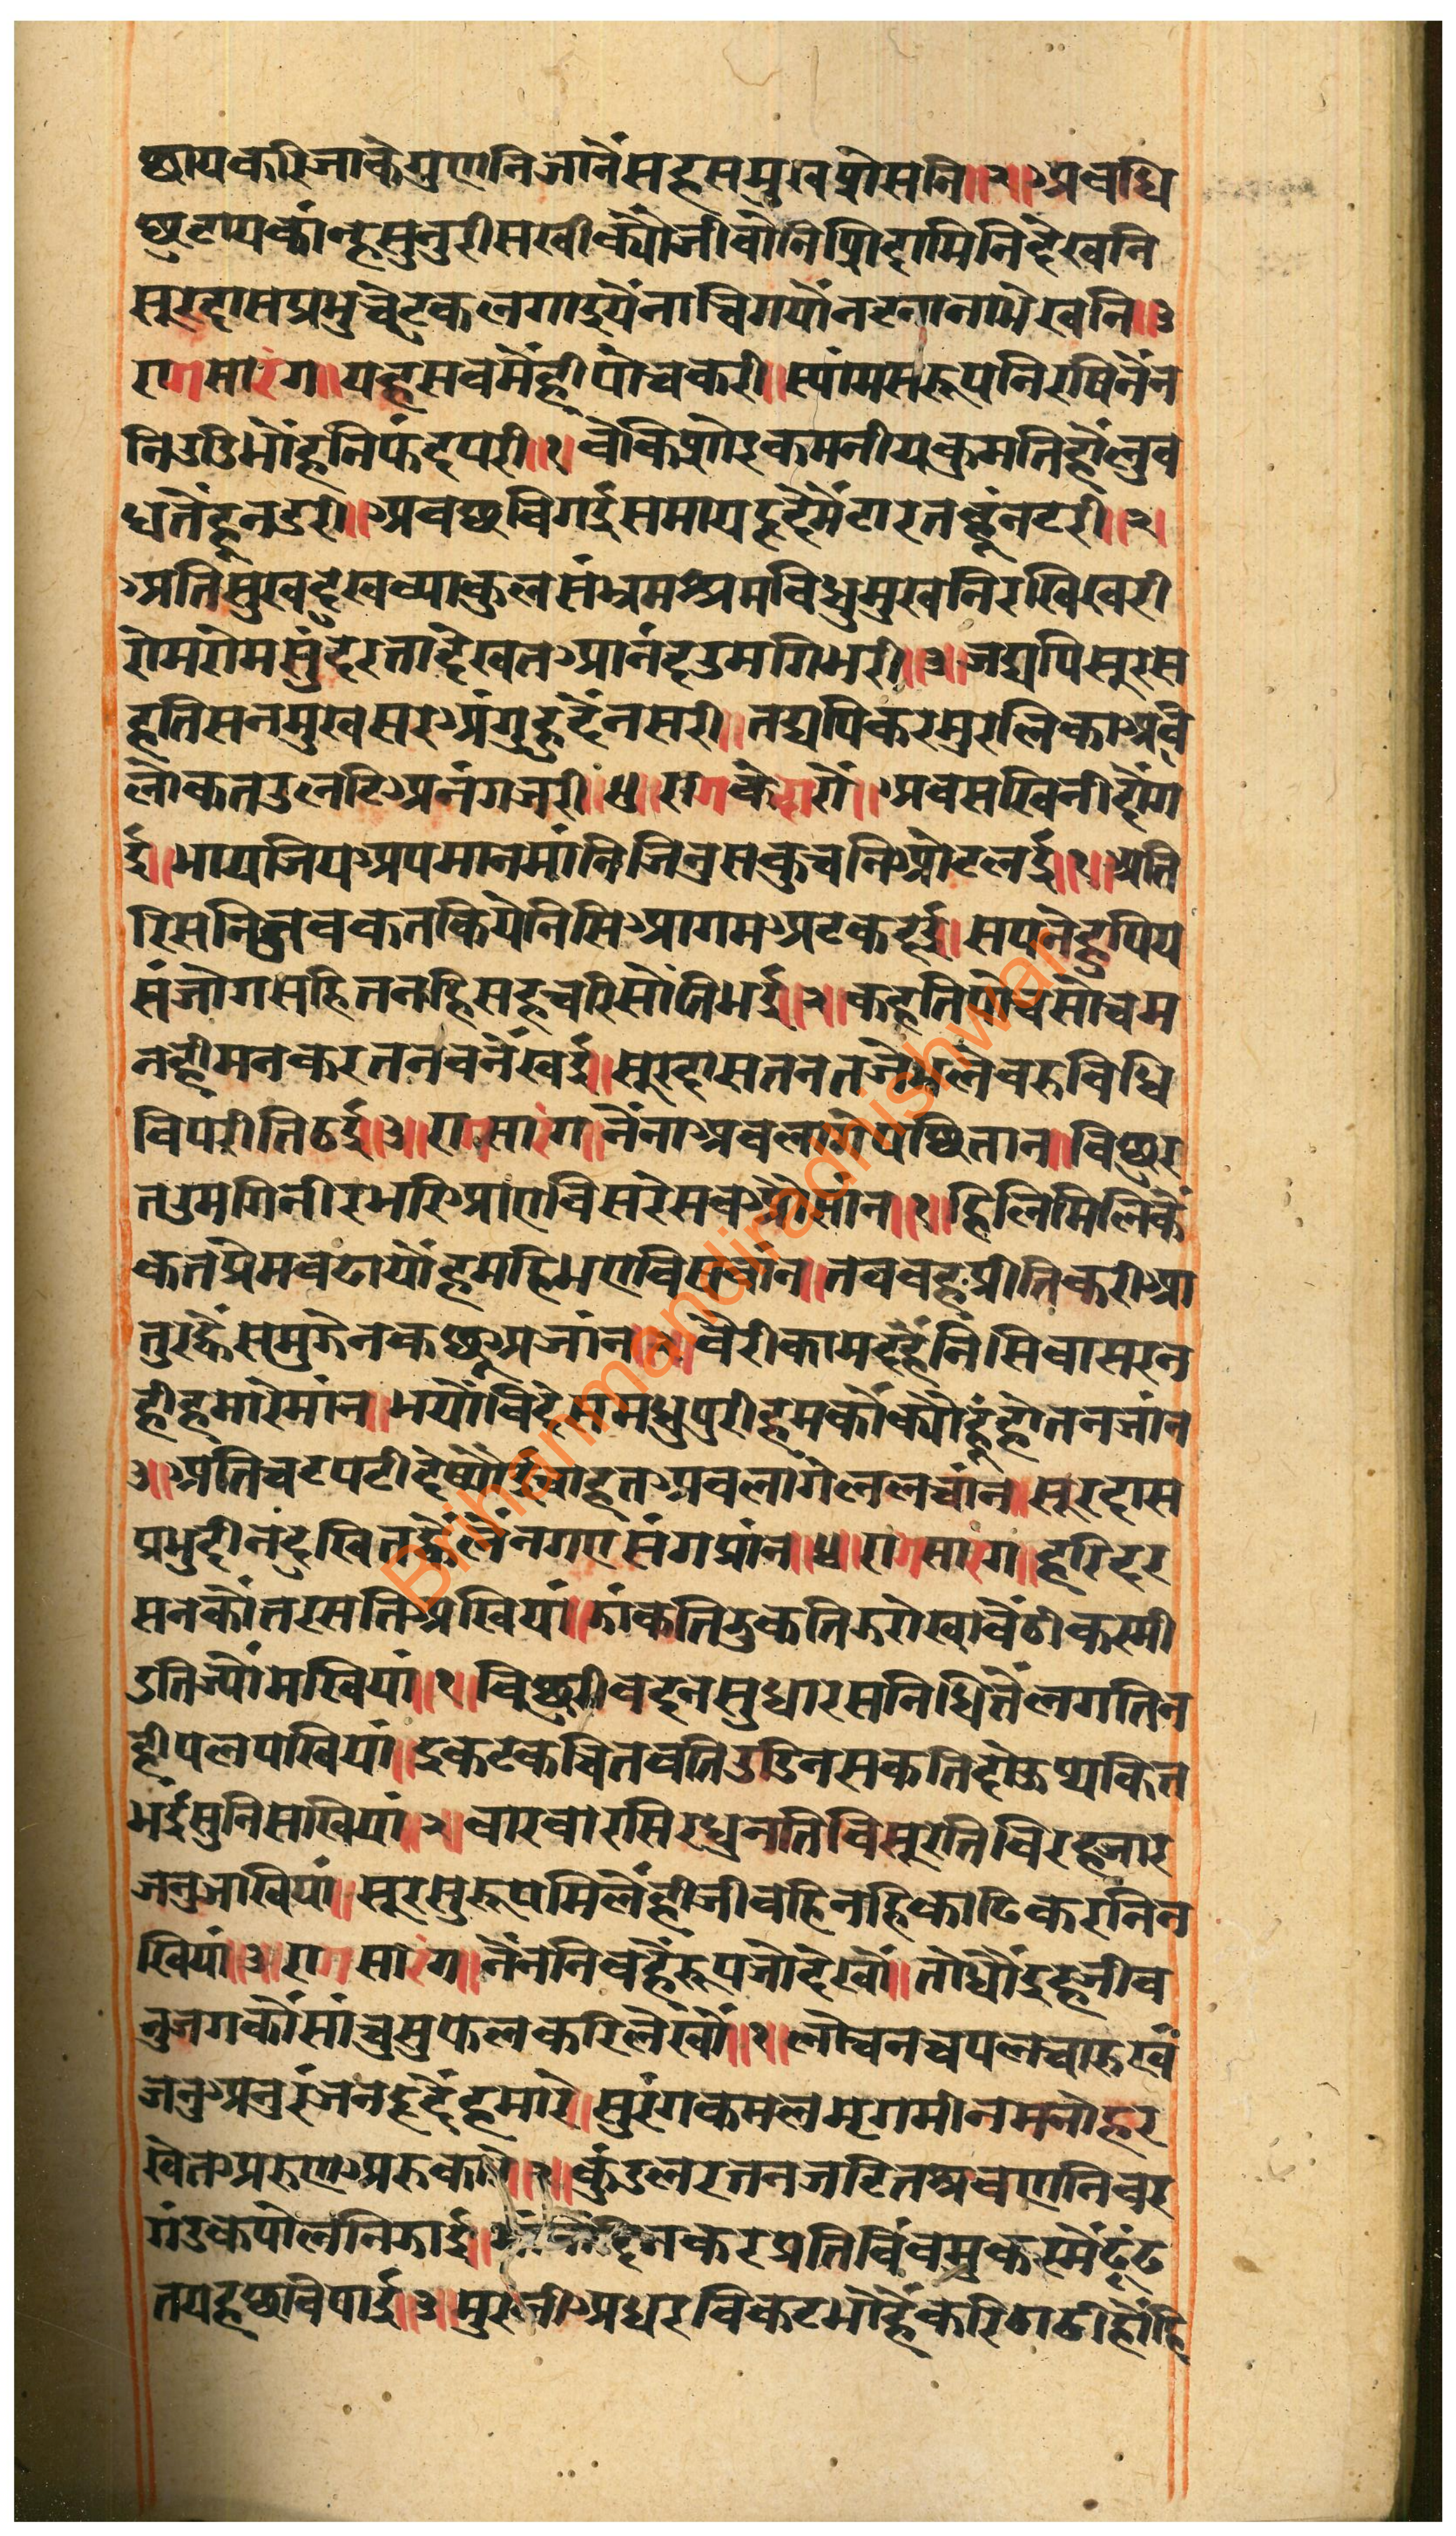 छायकरिजाकेगुणनिजानैंसहसमुषप्रोसनि॥२॥अवधि
छटायकांन्हसुनुरीसखीक्यौजीवौनिमिदामिनिदेखनि
सूरदासप्रभुचेटकलगाइयेंनाचिगयौंनटनानाभेखनि॥३
रागसारंग॥यहसवमैंहीपोचकरी॥स्यांमसरूपनिरषिनैंन
निउडिभौंहनिफंदपरी॥१॥वैकिशोरकमनीयकुमतिहौंलुव
धतैंहूनडरी॥अवछविगईसमायहृदैमैंटारतहूंनटरी॥२॥
अतिसुखदुखव्याकुलसंभ्रमश्रमविधुमुखनिरखिखरी
रोमरोमसुंदरतादेखतआनंदउमगिभरी॥३॥जद्यपिसूरस
हतिसनमुखसरअंगुहुदैंनसरी॥तद्यपिकरमुरलिकाअव
लोकतउलटिअनंगजरी॥४॥रागकेदारौ॥अवसखिनीदौंग
ई॥भाग्यजियअपमानमांनिजिनुसकुचनिओटलई॥१॥अति
रिसनिजुवकतकियेनिसिआगमअटकहई॥सपनेहुपिय
संजोगसहितनहिसहचरिसौतिभई॥२॥कहतिपोचसोचम
नहीमनकरतनवनैंखई॥सूरदासतनतजैंभलेवरुविधि
विपरीतिठई॥३॥रागसारंग॥नैंनाअवलागेपछितान॥विछुर
तउमगिनीरभरिआएविसरेसवऔसांन॥१॥हिलिमिलिकें
कतप्रेमवढायौहमहिभएविसवांन॥तववहप्रीतिकरीआ
तुरह्वैसमुझेनकछूअजांन॥२॥वैरीकामदहैनिसिवासरन
हीहमारेमांन॥भयौविदेसमधुपुरीहमकौंक्यौहूंहोतनजांन
३॥अतिचटपटीदेष्यौईचाहतअवलागेललचांन॥सूरदास
प्रभुदीनदुखितह्वैलैनगएसंगप्रांन॥४॥रागसारंग॥हरिदर
सनकौंतरसतिअखियां॥झांकतिझुकतिझरोखावैंठीकरमी
डतिज्यौमखियां॥१॥विछुरीवदनसुधारसनिधितैंलगतिन
हीपलपखियां॥इकटकचितवतिउडिनसकतिदोऊथकित
भईसुनिसखियां॥२॥वारवारसिरधुनतिविसूरतिविरहजार
जनुजाखियां॥सूरसुरूपमिलैंहीजीवहिनहिकाटिकरनिन
खियां॥३॥रागसारंग॥नैंननिवहैरूपजोदेखौं॥तोऊधौइहजीव
नुजगकौंसांचुसुफलकरिलेखौं॥१॥लोचनचपलचारुखं
जनुअनुरंजनहृदैहमारे॥सुरंगकमलमृगमीनमनोहर
स्वेतअरुणअरुकारे॥२॥कुंडलरतनजटितश्रवाणनिवर
गंडकपोलनिझाई॥ दिनकरप्रतिविंवमुकरमैंढूंढ
तयहछविपाई॥३॥मुरलीअधरविकटभौहैंकरिठाढीहौंहि
Brihanmandiradhishwar